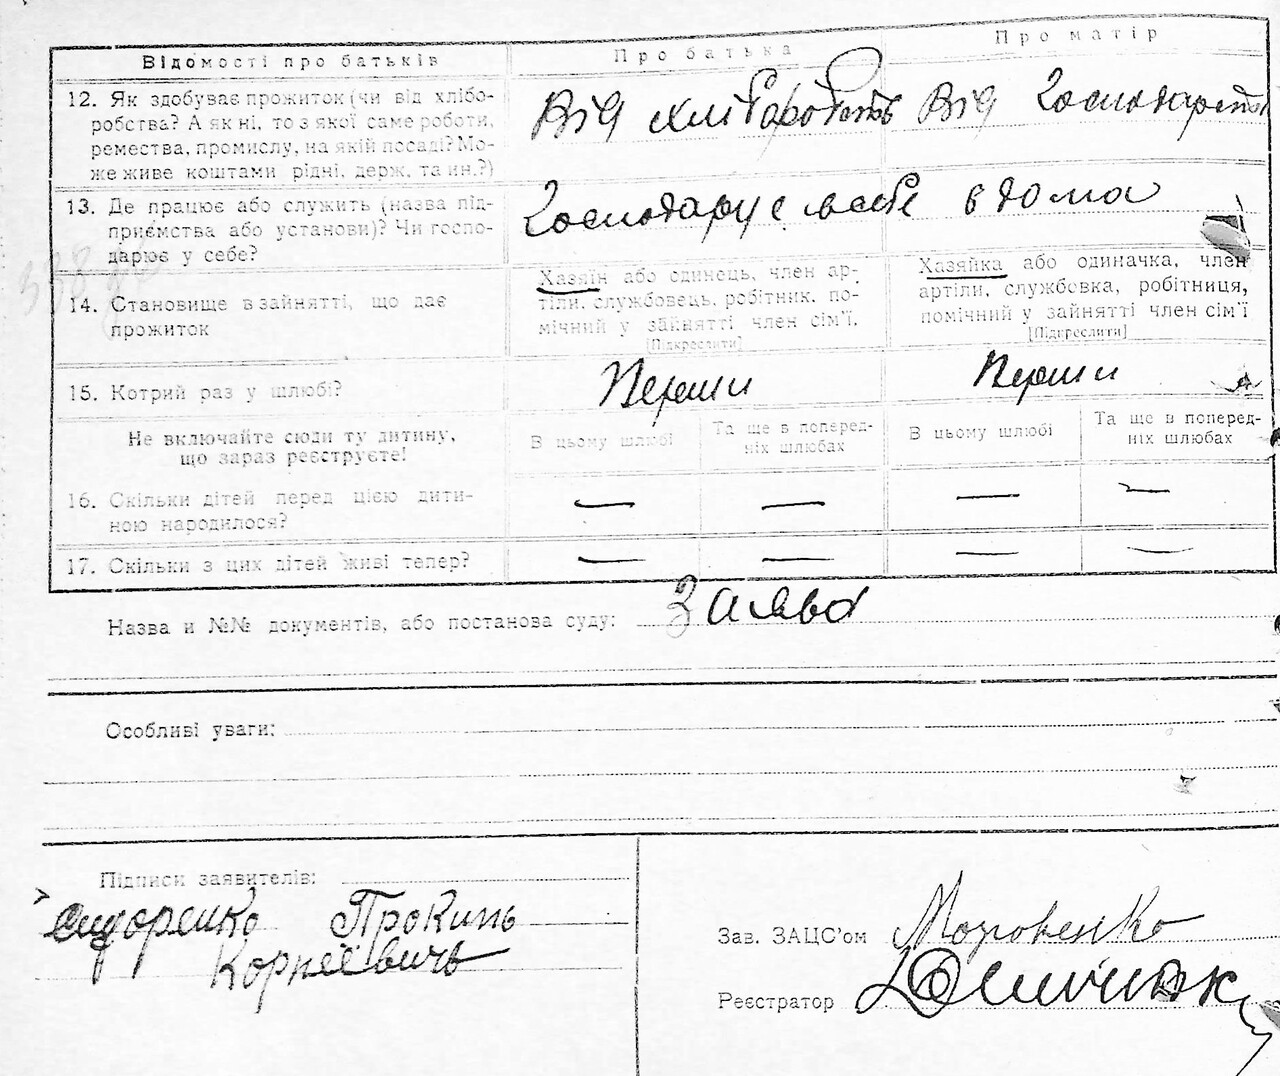 Відомості про батьків
Про батька
Про матір
12. Як здобуває прожиток (чи від хлібо-
робства? А як ні, то з якої саме роботи,
ремества, промислу, на якій посаді? Мо-
же живе коштами рідні, держ. та ин.?)
Від хліборобств
Від Господарства
13. Де працює або служить (назва під-
приємства або установи)? Чи госпо-
дарює у себе?
Господарує в себе в дома
14. Становище в зайнятті, що дає
прожиток
Хазяїн або одинець, член ар-
тілі, службовець, робітник, по-
мічний у зайнятті член сім'ї.
[Підкреслити]
Хазяйка або одиначка, член
артіли, службовка, робітниця,
помічний у зайнятті член сім'ї
[Підкреслити]
15. Котрий раз у шлюбі?
Перши
Перши
Не включайте сюди ту дитину,
що зараз реєструєте!
В цьому шлюбі
Та ще в поперед-
ніх шлюбах
В цьому шлюбі
Та ще в поперед-
ніх шлюбах
16. Скільки дітей перед цією дити-
ною народилося?
— — — —
17. Скільки з цих дітей живі тепер?
— — — —
Назва и №№ документів, або постанова суду: Заява
Особливі уваги:
Підписи заявителів:
Сидоренко Прокипь
Корнеївичь
Зав. ЗАЦС'ом
Реєстратор